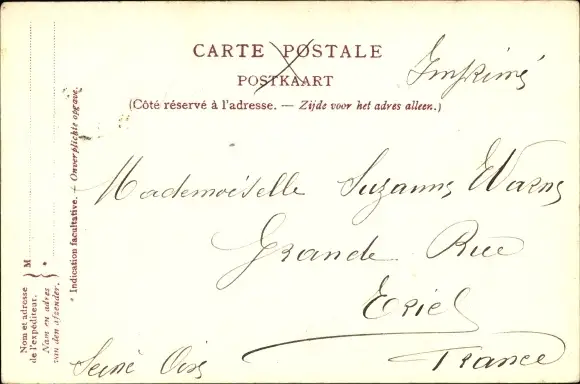 CARTE POSTALE
Imprimé
POSTKAART
(Côté réservé à l'adresse. — Zijde voor het adres alleen.)
Mademoiselle Suzanne
Grande Rue
Eriel
Seine Oise
France
* Indication facultative. — Onverplichte opgave.
M
*
Nom et adresse
de l'expéditeur.
Naam en adres
van den afzender.